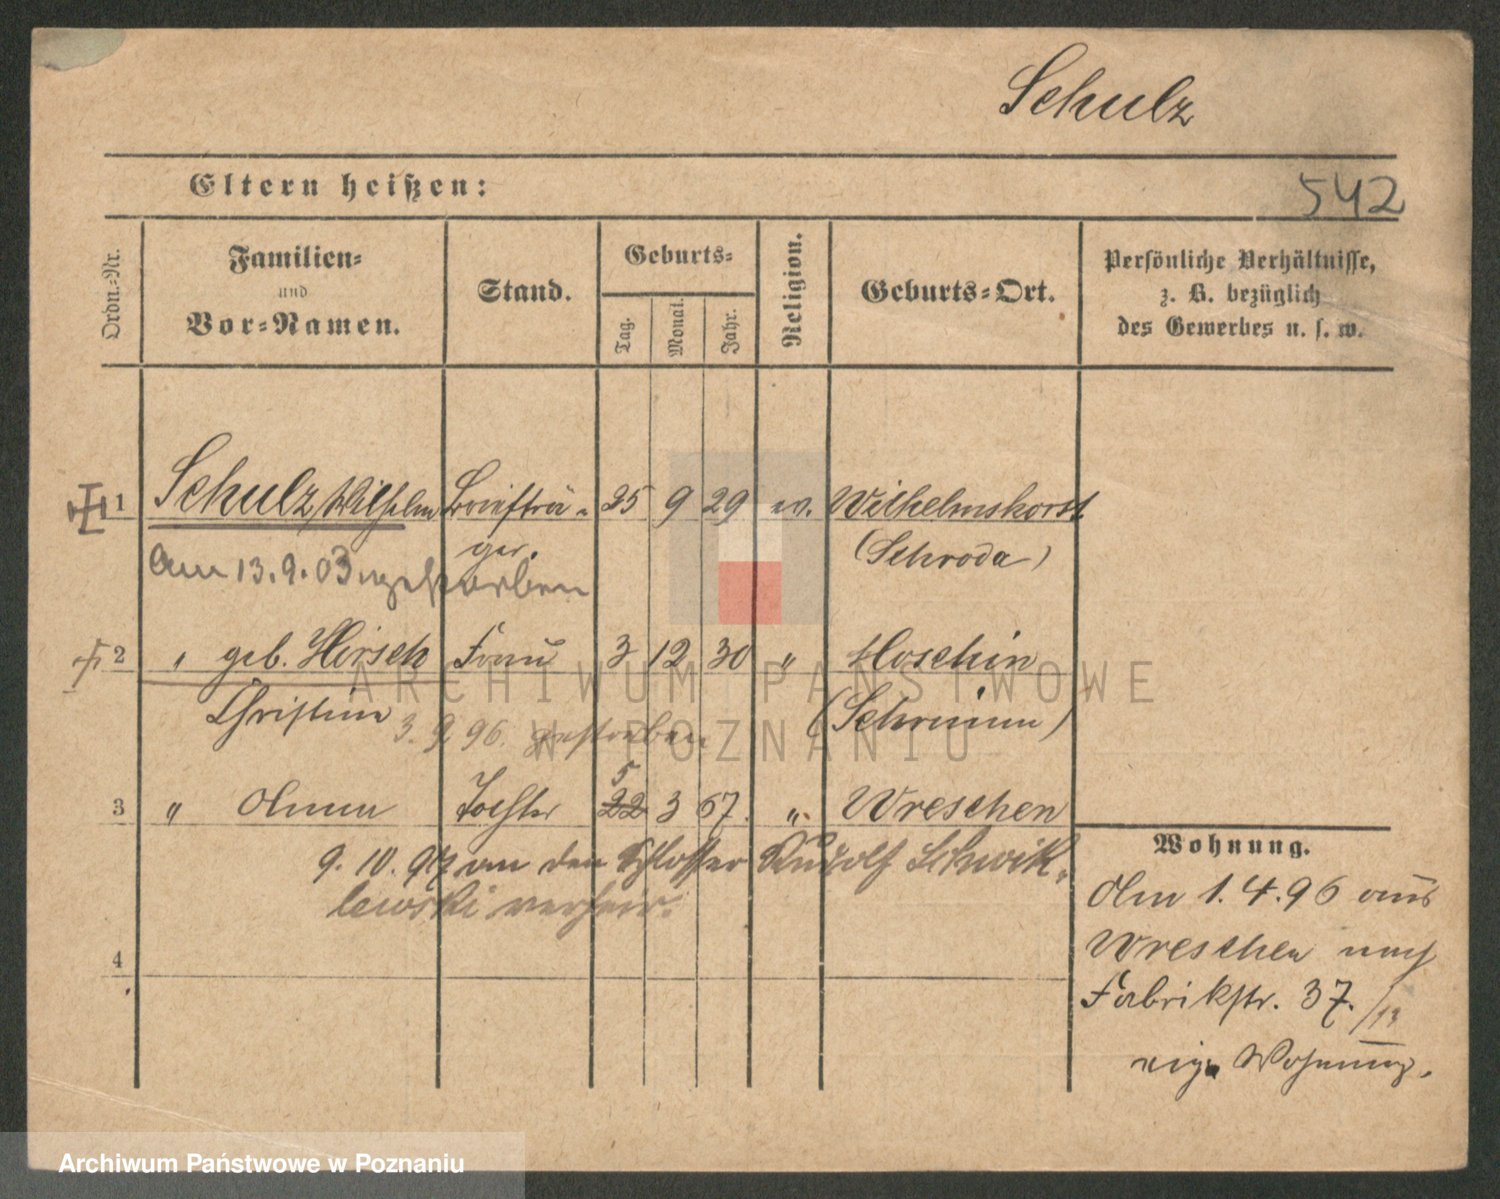 Schulz
Eltern heißen:
542
Ordn.-Nr.
Familien-
und
Vor-Namen.
Stand.
Geburts-
Tag.
Monat.
Jahr.
Religion.
Geburts-Ort.
Persönliche Verhältnisse,
z. B. bezüglich
des Gewerbes u. s. w.
1 Schulz, Wilhelm Briefträ- 25 9 29 ev. Wilhelmshorst
ger. (Schroda)
Am 13.9.03 gestorben
2 " geb. Hirsch Frau 3 12 30 " Moschin
Christine (Schrimm)
3. 9. 96. gestorben
5
3 " Anna Tochter 22 3 67. " Wreschen
9. 10. 97 an den Schlosser Rudolf Schwik-
lewski verheir.
4
Wohnung.
Am 1. 4. 96 aus
Wreschen nach
Fabrikstr. 37. /13
eig. Wohnung.
ARCHIWUM PAŃSTWOWE
W POZNANIU
Archiwum Państwowe w Poznaniu